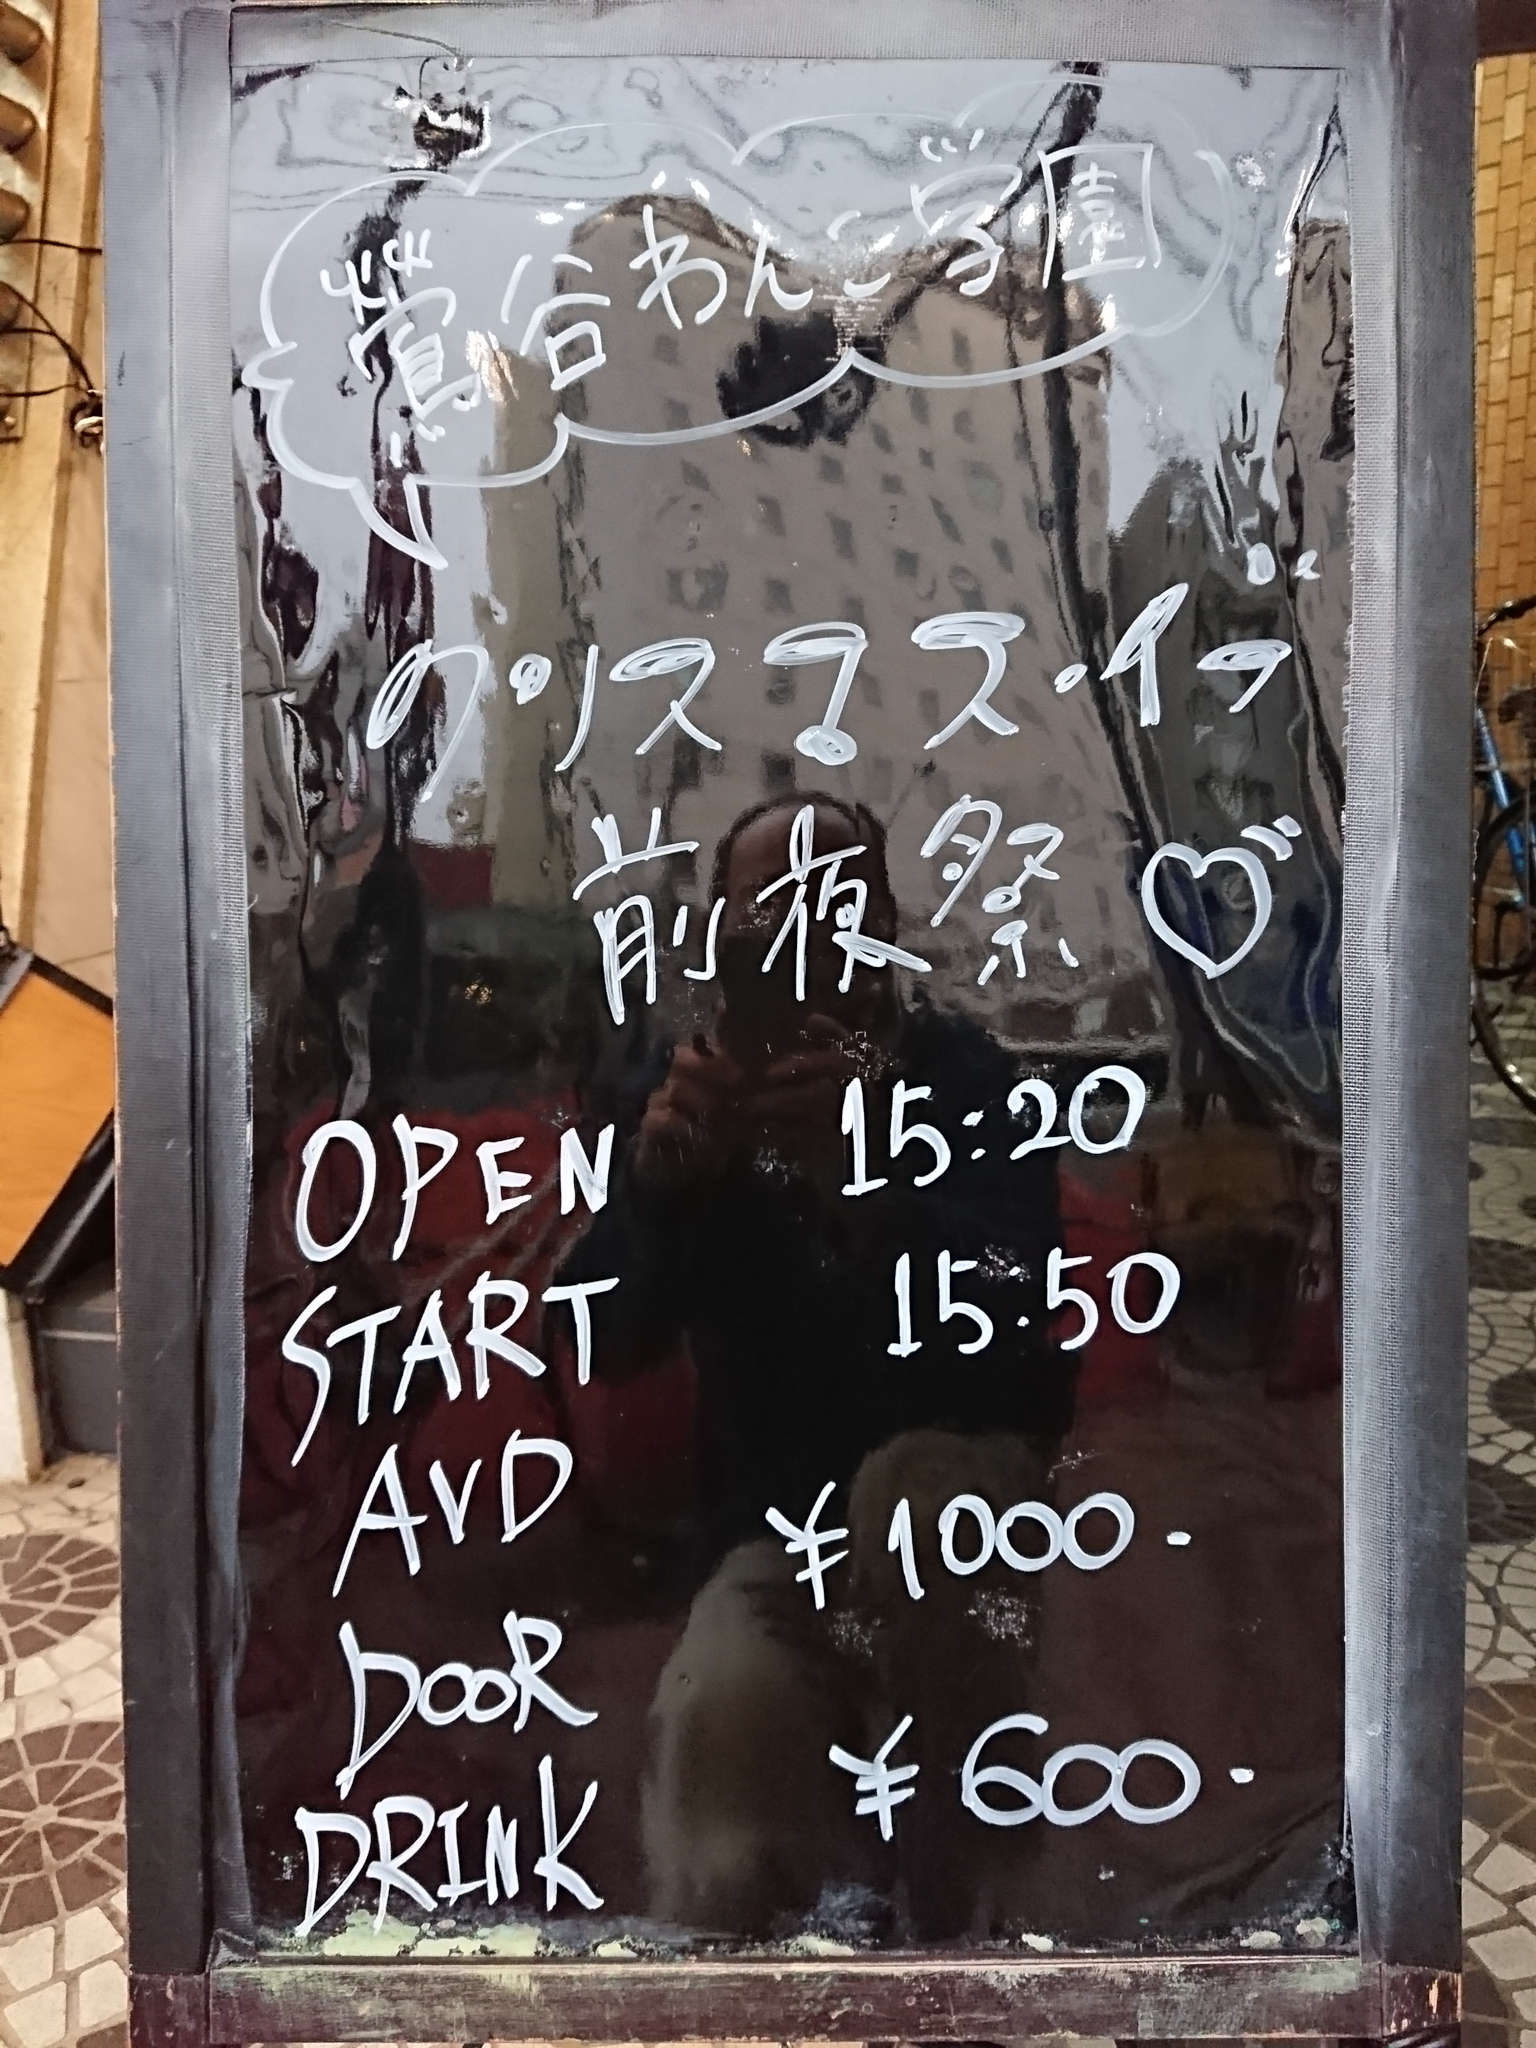 鶯谷わんこ学園
クリスマス・イヴ
前夜祭♡
OPEN 15:20
START 15:50
AVD ¥1000.
DOOR
DRINK ¥600.